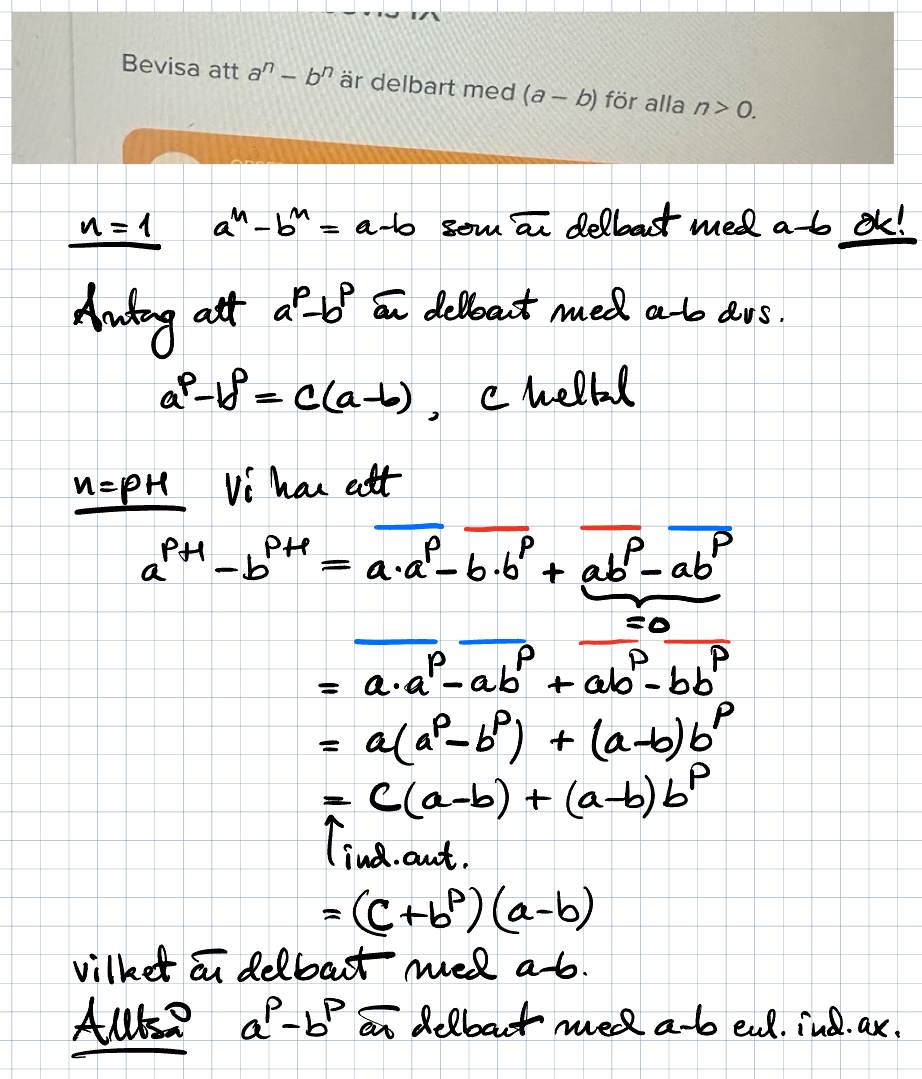 Bevisa att aⁿ – bⁿ är delbart med (a – b) för alla n > 0.
n=1 aⁿ-bⁿ = a-b som är delbart med a-b ok!
Antag att aᵖ-bᵖ är delbart med a-b dvs.
aᵖ-bᵖ = C(a-b), C heltal
n=p+1 Vi har att
aᵖ⁺¹-bᵖ⁺¹ = a·aᵖ-b·bᵖ + abᵖ-abᵖ
=0
= a·aᵖ-abᵖ + abᵖ-bbᵖ
= a(aᵖ-bᵖ) + (a-b)bᵖ
= C(a-b) + (a-b)bᵖ
↑ind.ant.
= (C+bᵖ)(a-b)
vilket är delbart med a-b.
Alltså aᵖ-bᵖ är delbart med a-b enl. ind.ax.